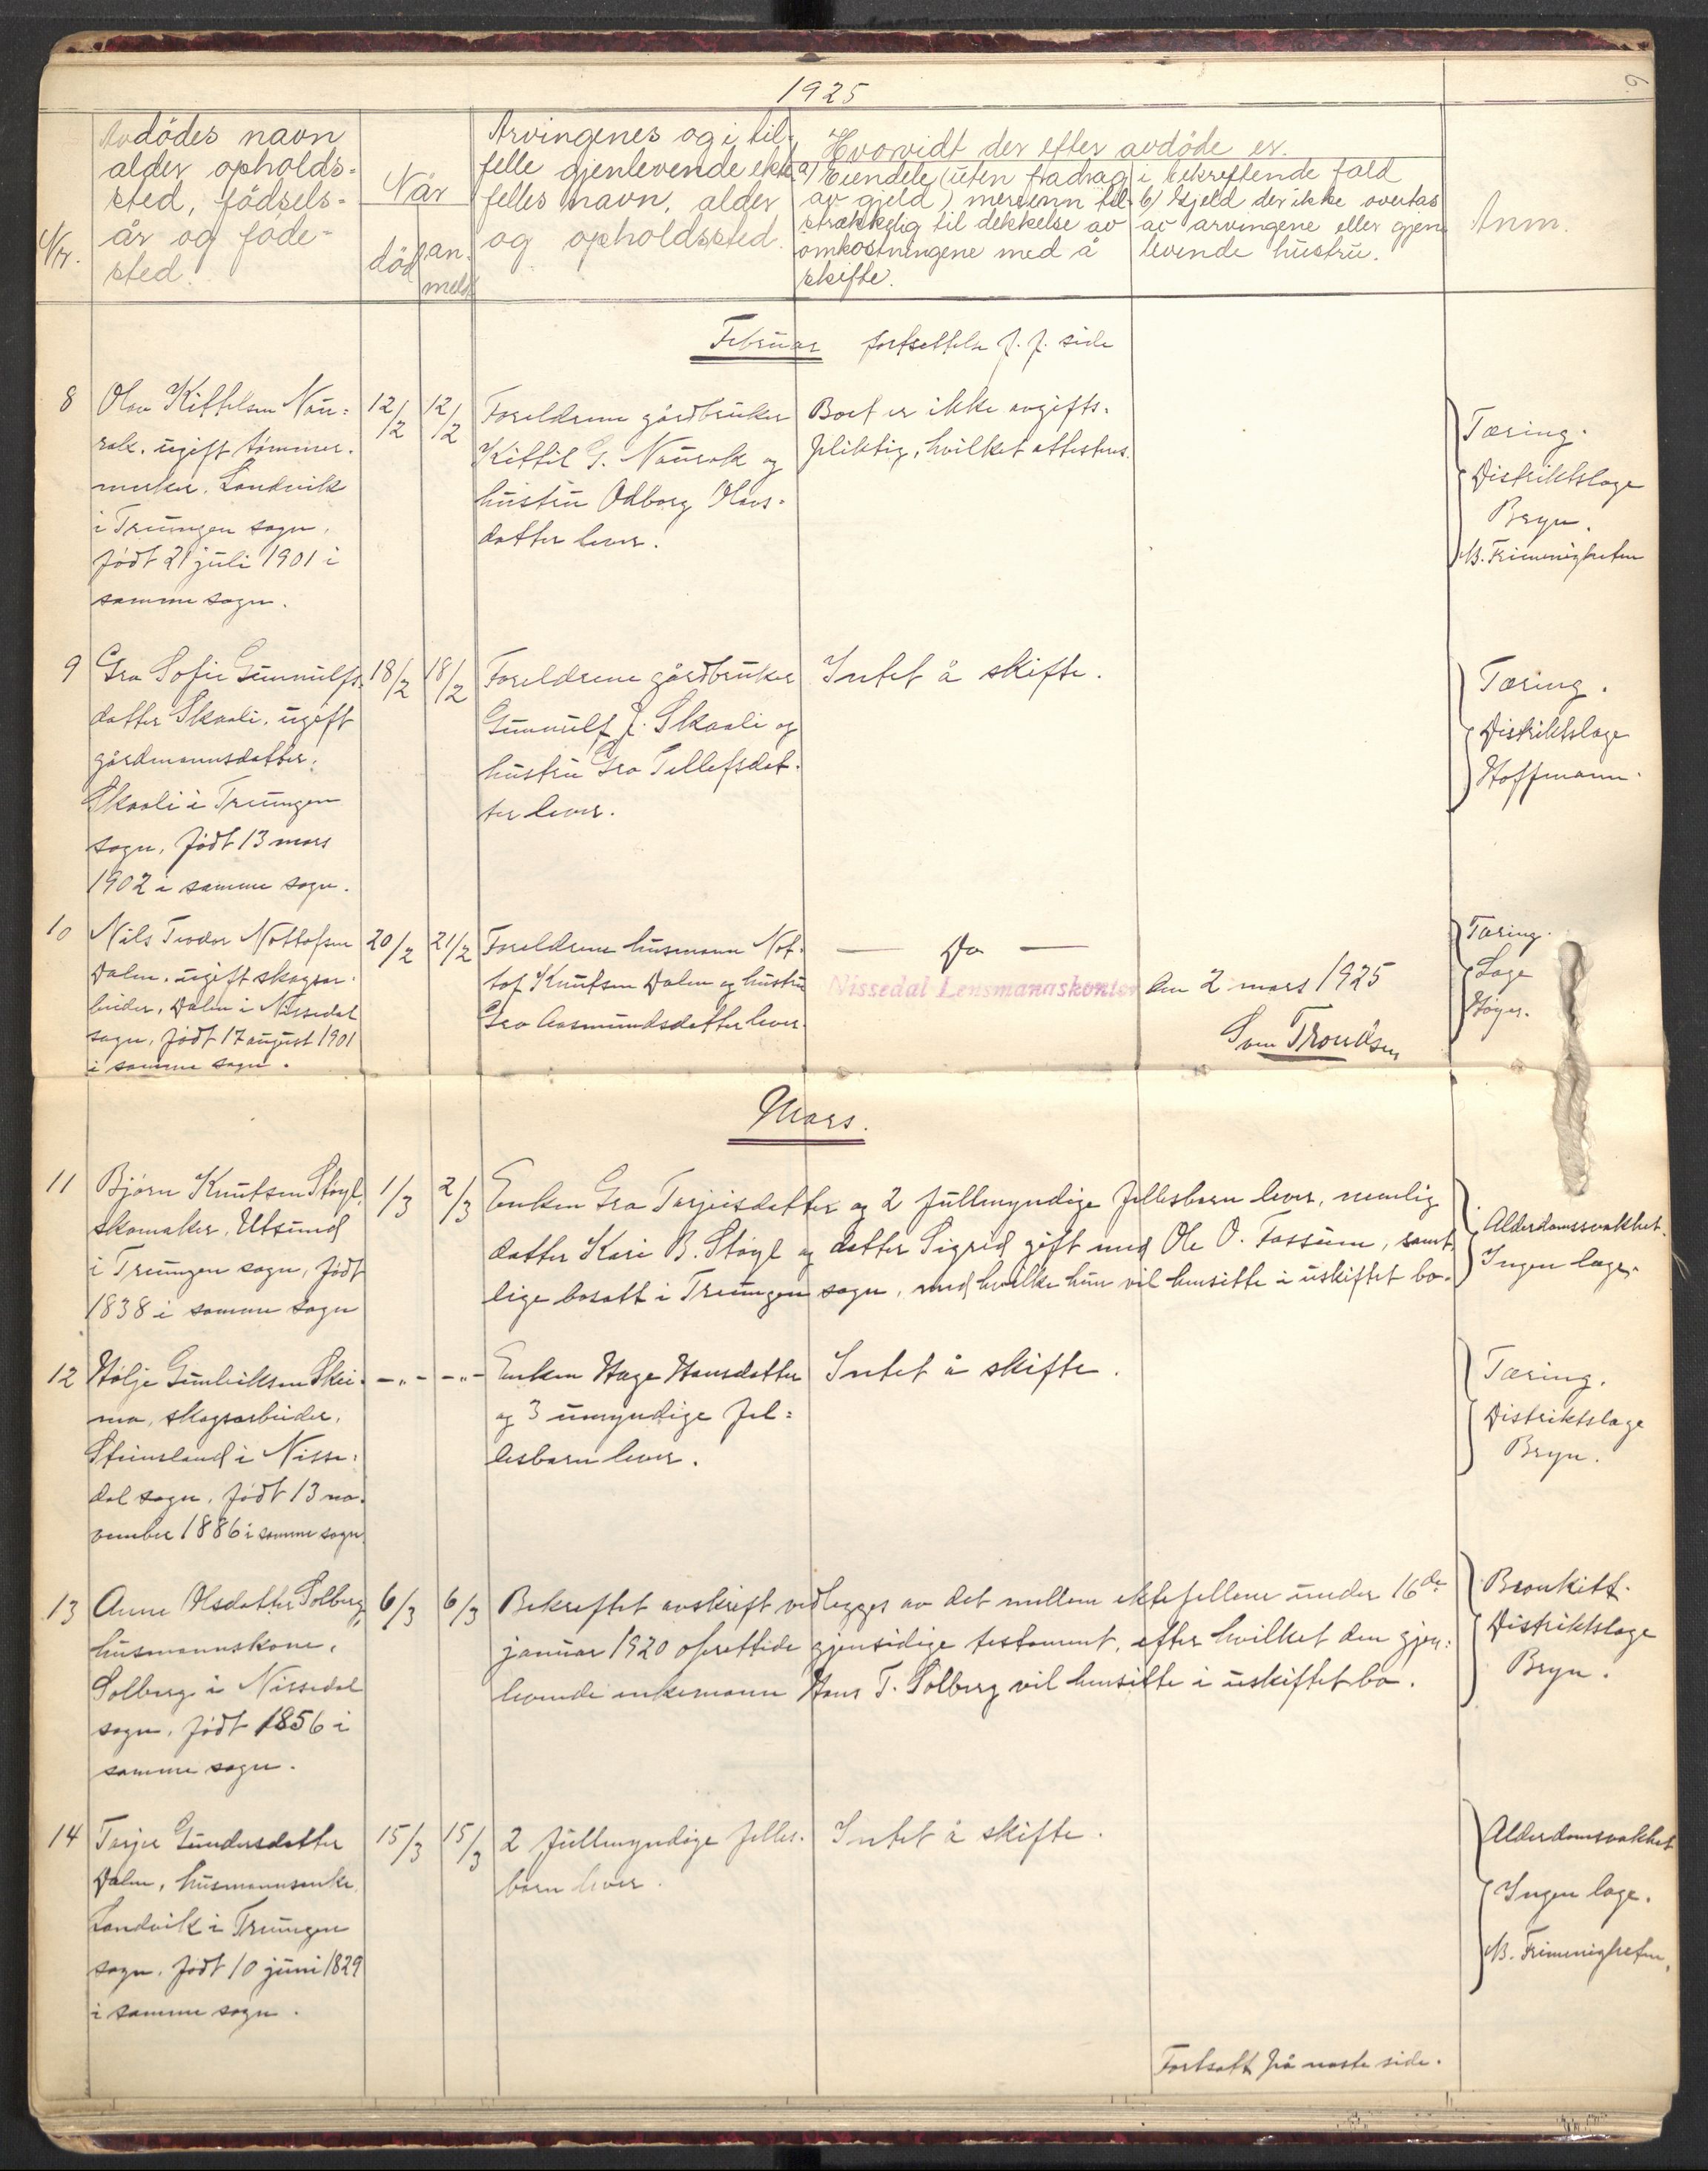 1925
6
Nr.
Avdödes navn
alder opholds-
sted, födsels-
år og föde-
sted.
Når
död
an-
meldt
Arvingenes og i til-
felle gjenlevende ekte-
felles navn, alder
og opholdssted.
Hvorvidt der efter avdöde er.
a) Eiendele (uten fradrag
av gjeld) mer enn til-
strækkelig til dekkelse av
omkostningene med å
skifte.
i bekreftende fald
b) Gjeld der ikke overtas
av arvingene eller gjen-
levende hustru.
Anm.
Februar fortsettelse f. f. side
8
Olav Kittelsen Nau-
rak, ugift tømmer-
merker, Landvik
i Treungen sogn,
født 21 juli 1901 i
samme sogn.
12/2
12/2
Foreldrene gårdbruker
Kittil G. Naurak og
hustru Odborg Olavs-
datter lever.
Boet er ikke avgifts-
pliktig, hvilket attesteres.
Tæring.
Distriktslæge
Bryn.
M. Frimenigheten
9
Gro Sofie Gunnulfs-
datter Skaali, ugift
gårdmannsdatter,
Skaali i Treungen
sogn, født 13 mars
1902 i samme sogn.
18/2
18/2
Foreldrene gårdbruker
Gunnulf J. Skaali og
hustru Gro Tellefsdat-
ter lever.
Intet å skifte.
Tæring.
Distriktslæge
Hoffmann.
10
Nils Teodor Nottofsen
Dalen, ugift skogsar-
beider, Dalen i Nissedal
sogn, født 17 august 1901
i samme sogn.
20/2
21/2
Foreldrene husmann Not-
tof Knutsen Dalen og hustru
Gro Aasmundsdatter lever.
— Do —
Nissedal Lensmannskontor den 2 mars 1925
Sven Trondsen
Tæring.
Læge
Høyer.
Mars.
11
Bjørn Knutsen Støyl,
skomaker, Utsund
i Treungen sogn, født
1838 i samme sogn
1/3
2/3
Enken Gro Tarjeisdatter og 2 fullmyndige fellesbarn lever, nemlig
datter Kari B. Støyl og datter Sigrid gift med Ole O. Fossum, samt-
lige bosatt i Treungen sogn, med hvilke hun vil hensitte i uskiftet bo.
Alderdomssvakhet.
Ingen læge.
12
Hølje Gunleiksen Skei-
mo, skogsarbeider,
Steinsland i Nisse-
dal sogn, født 13 no-
vember 1886 i samme sogn
-„-
-„-
Enken Hæge Hansdatter
og 3 umyndige fel-
lesbarn lever.
Intet å skifte.
Tæring.
Distriktslæge
Bryn.
13
Anne Olsdatter Solberg,
husmannskone,
Solberg i Nissedal
sogn, født 1856 i
samme sogn.
6/3
6/3
Bekreftet avskrift vedlegges av det mellem ektefellene under 16de
januar 1920 oprettede gjensidige testament, efter hvilket den gjen-
levende enkemann Hans T. Solberg vil hensitte i uskiftet bo.
Bronkitt.
Distriktslæge
Bryn.
14
Tarjer Gundersdatter
Dalen, husmannsenke,
Landvik i Treungen
sogn, født 10 juni 1829
i samme sogn.
15/3
15/3
2 fullmyndige felles-
barn lever.
Intet å skifte.
Alderdomsvakhet
Ingen læge.
M. Frimenigheten.
Fortsatt på næste side.